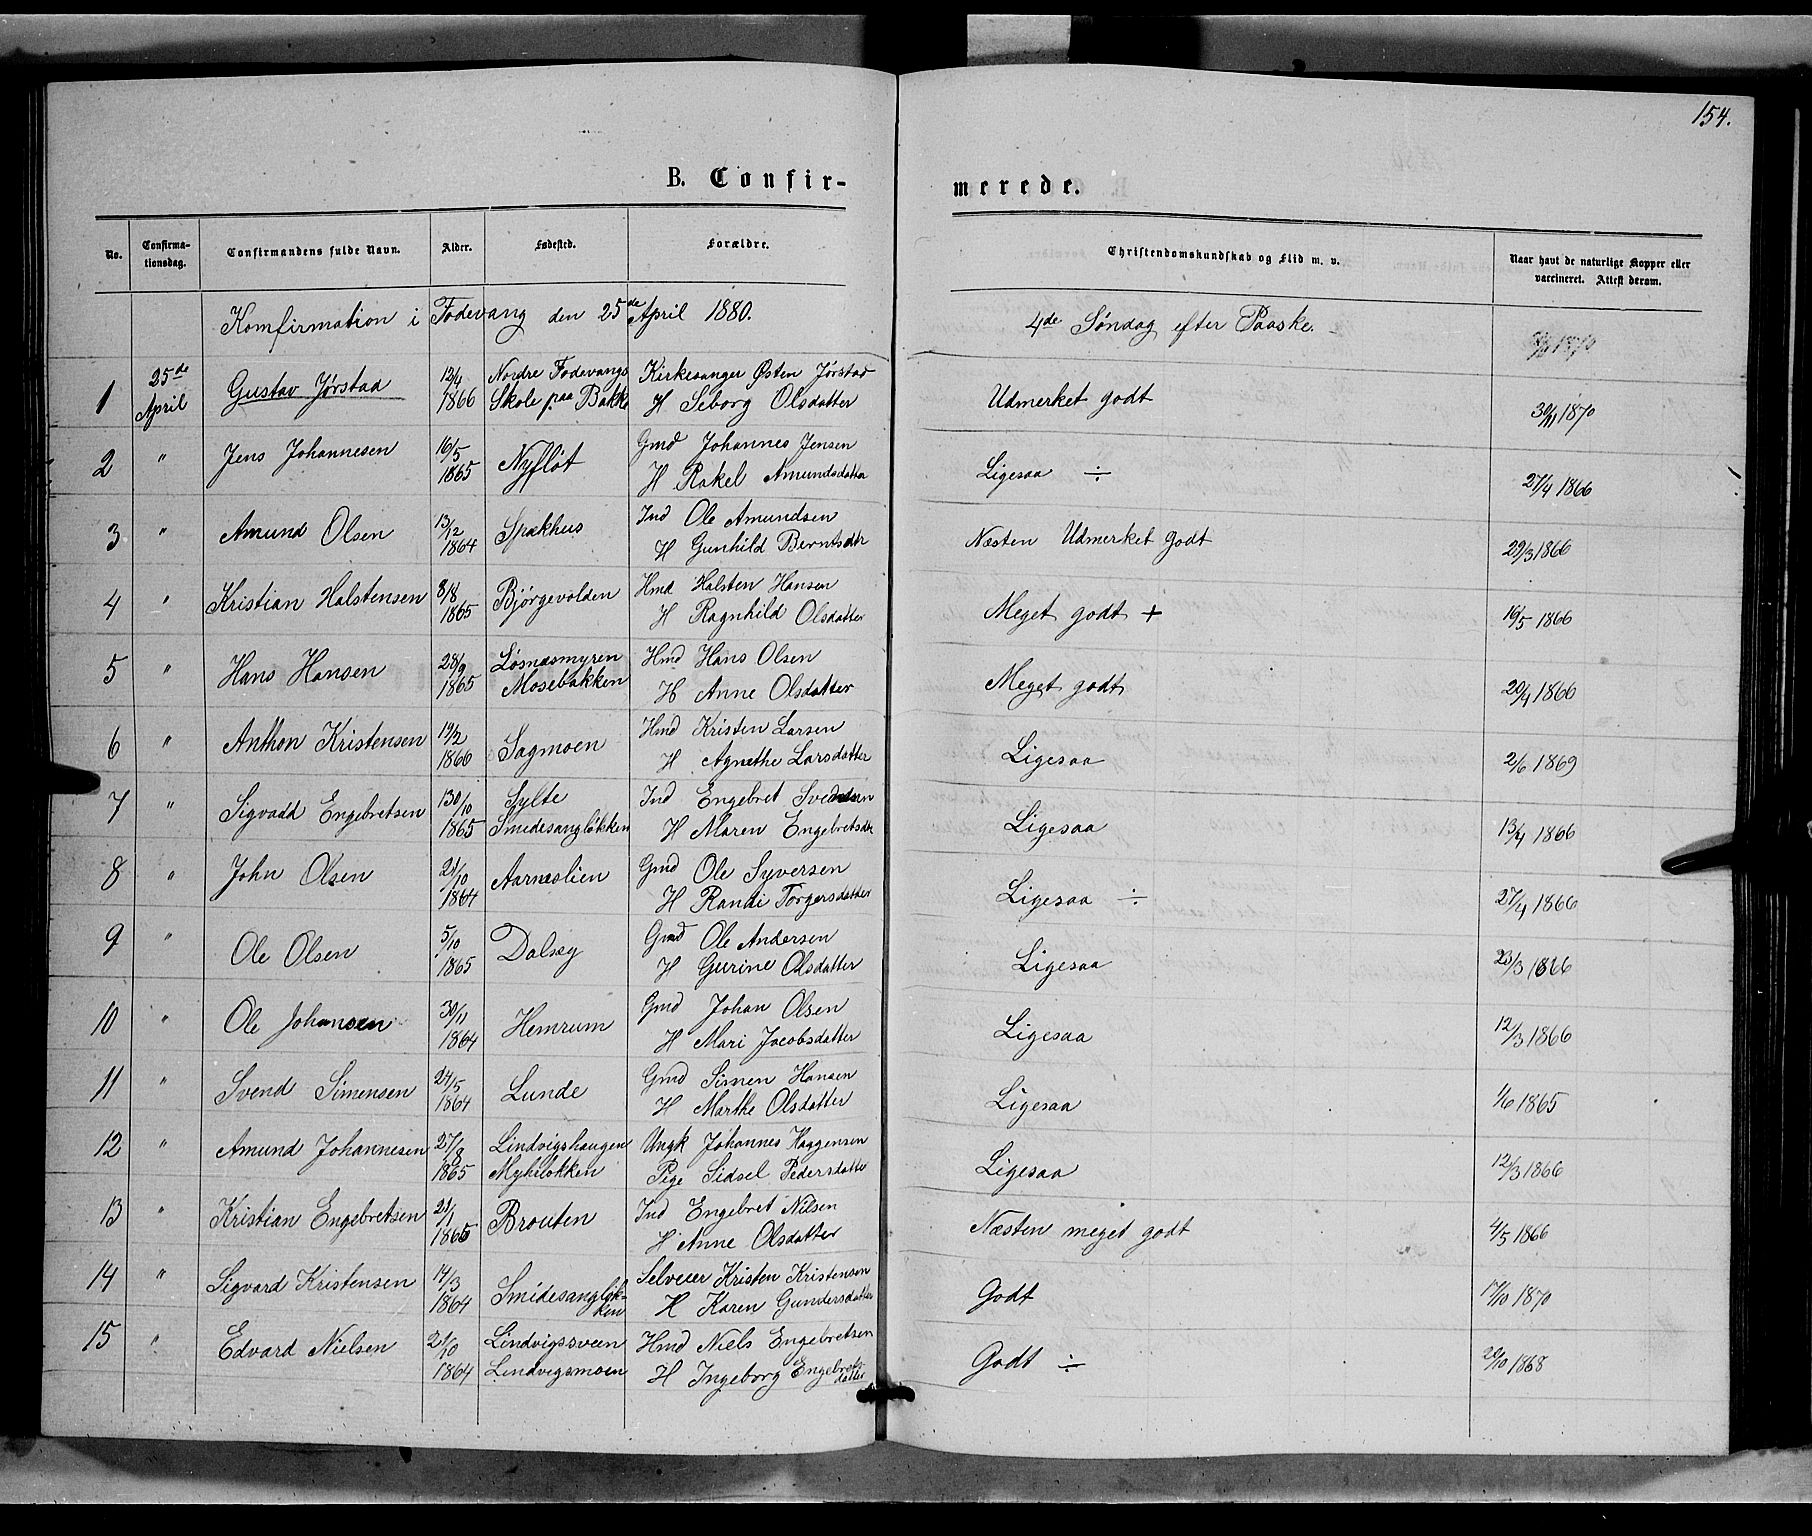 154.
B. Confir-
merede.
No.
Confirma-
tionsdag.
Confirmandens fulde Navn.
Alder.
Fødested.
Forældre.
Christendomskundskab og Flid m. v.
Naar havt de naturlige Kopper eller
vaccineret. Attest derom.
Komfirmation i Fodevang den 25de April 1880.
4de Søndag efter Paaske.
1 25de April Gustav Jørstad 12/4 1866 Nordre Fodevangs Skole paa Bakke Kirkesanger Østen Jørstad
H Seborg Olsdatter Udmerket godt 30/11 1870
2 " Jens Johannesen 16/5 1865 Nyfløt Gmd Johannes Jensen
H Rakel Amundsdatter Ligesaa ÷ 27/4 1866
3 " Amund Olsen 13/12 1864 Spækhus Ind Ole Amundsen
H Gunhild Berntsdtr Næsten Udmerket godt 29/3 1866
4 " Kristian Halstensen 8/8 1865 Bjørgevolden Hmd Halsten Hansen
H Ragnhild Olsdatter Meget godt + 16/5 1866
5 " Hans Hansen 28/9 1865 Løsnæsmyren Mosebakken Hmd Hans Olsen
H Anne Olsdatter Meget godt 20/4 1866
6 " Anthon Kristensen 19/2 1866 Sagmoen Hmd Kristen Larsen
H Agnethe Larsdatter Ligesaa 2/6 1869
7 " Sigvadd Engebretsen 130/10 1865 Sylte Smidesangløkken Ind Engebret Svendsen
H Maren Engebretsdtr Ligesaa 13/4 1866
8 " John Olsen 21/10 1864 Aarneslien Gmd Ole Syversen
H Randi Torgersdatter Ligesaa ÷ 27/4 1866
9 " Ole Olsen 5/10 1865 Dalsæg Gmd Ole Andersen
H Gurine Olsdatter Ligesaa 23/3 1866
10 " Ole Johansen 30/11 1864 Hemrum Gmd Johan Olsen
H Mari Jacobsdatter Ligesaa 12/3 1866
11 " Svend Simensen 24/5 1864 Lunde Gmd Simen Hansen
H Marthe Olsdatter Ligesaa 1/6 1865
12 " Amund Johannesen 27/8 1865 Lindvigshaugen Mykeløkken Ungk Johannes Haggensen
Pige Sidsel Pedersdatter Ligesaa 12/3 1866
13 " Kristian Engebretsen 21/1 1865 Brouten Ind Engebret Nilsen
H Anne Olsdatter Næsten meget godt 4/5 1866
14 " Sigvard Kristensen 14/3 1864 Smidesangløk-ken Selveier Kristen Kristensen
H Karen Gundersdatter Godt 17/10 1870
15 " Edvard Nielsen 21/10 1864 Lindvigssveen Lindvigsmoen Hmd Niels Engebretsen
H Ingeborg Engebretsdatter Godt ÷ 20/10 1868